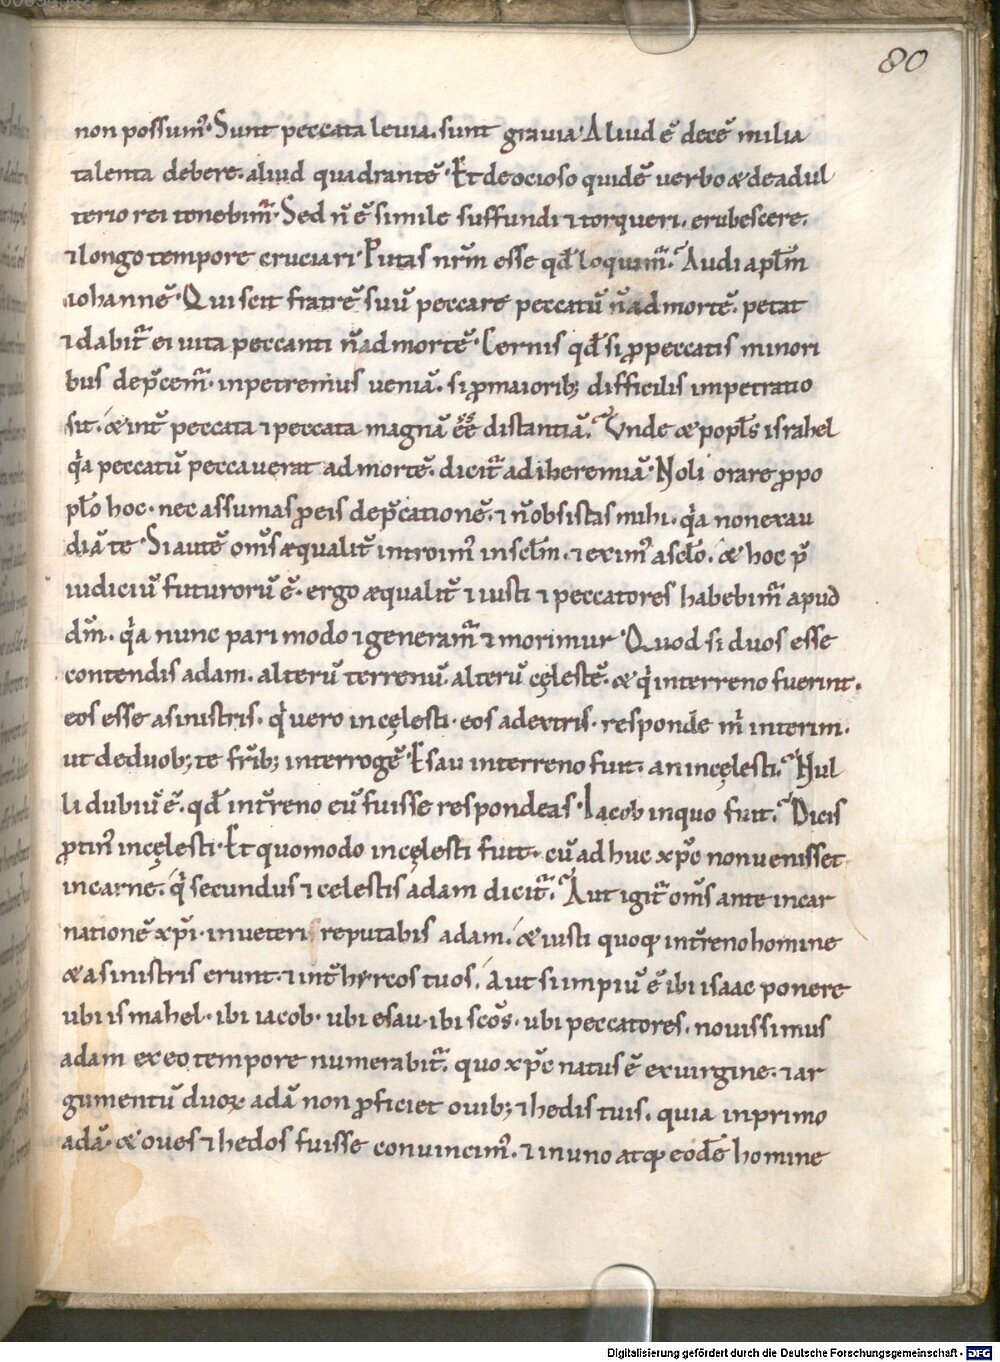 80
non possum᷒· Sunt peccata leuia. sunt grauia· Aliud ē decē milia
talenta debere. aliud quadrantē· Et de ocioso quidē uerbo & de adul
terio rei tenebim᷑· Sed n̄ ē simile suffundi ⁊ torqueri. erubescere.
⁊ longo tempore cruciari· Putas nr̄m esse qđ loquim᷑? Audi apl̄m
iohannē· Qui scit fratrē suū peccare peccatū n̄ ad mortē. petat
⁊ dabit᷑ ei uita peccanti n̄ ad mortē· Cernis qđ si ꝓ peccatis minori
bus dep̄cem᷑· inpetremus ueniā. si ꝓ maiorib; difficilis impetratio
sit. & int᷑ peccata ⁊ peccata magnā ēē distantiā? Vnde & popl̄s israhel
q̇a peccatū peccauerat ad mortē. dicit᷑ ad iheremiā· Noli orare ꝓ po
pl̄o hoc· nec assumas ꝓ eis dep̄cationē. ⁊ n̄ obsistas mihi. q̇a non exau
diā te· Si autē om̄s æqualit᷑ introim᷒ in scl̄m. ⁊ exim᷒ a scl̄o. & hoc p̄
iudiciū futurorū ē· ergo æqualit᷑ ⁊ iusti ⁊ peccatores habebim᷑ apud
dm̄. q̇a nunc pari modo ⁊ generam᷑ ⁊ morimur· Quod si duos esse
contendis adam. alterū terrenū. alterū cęlestē. & q̇ in terreno fuerint.
eos esse a sinistris. q̇ uero in cęlesti· eos a dextris· responde ṁ interim.
ut de duob; te fr̄ib; interrogē· Esau in terreno fuit. an in cęlesti? Nul
li dubiū ē. qđ int᷑reno eū fuisse respondeas· Iacob in quo fuit? Dicis
ꝓtin᷒ in cęlesti· Et quomodo in cęlesti fuit. cū adhuc xp̄c non uenisset
in carne. q̇ secundus ⁊ celestis adam dicit᷑? Aut igit᷑ om̄s ante incar
nationē xp̄i· in ueteri reputabis adam. & iusti quoq; int᷑reno homine
& a sinistris erunt. ⁊ int᷑ hyrcos tuos. Aut si impiū ē ibi isaac ponere
ubi ismahel· ibi iacob· ubi esau· ibi sc̄os· ubi peccatores. nouissimus
adam ex eo tempore numerabit᷑. quo xp̄c natus ē ex uirgine. ⁊ ar
gumentū duoꝝ adā non ꝓficiet ouib; ⁊ hedis tuis. quia in primo
adā· & oues ⁊ hedos fuisse conuincim᷒. ⁊ in uno atq; eodē homine
Digitalisierung gefördert durch die Deutsche Forschungsgemeinschaft - DFG